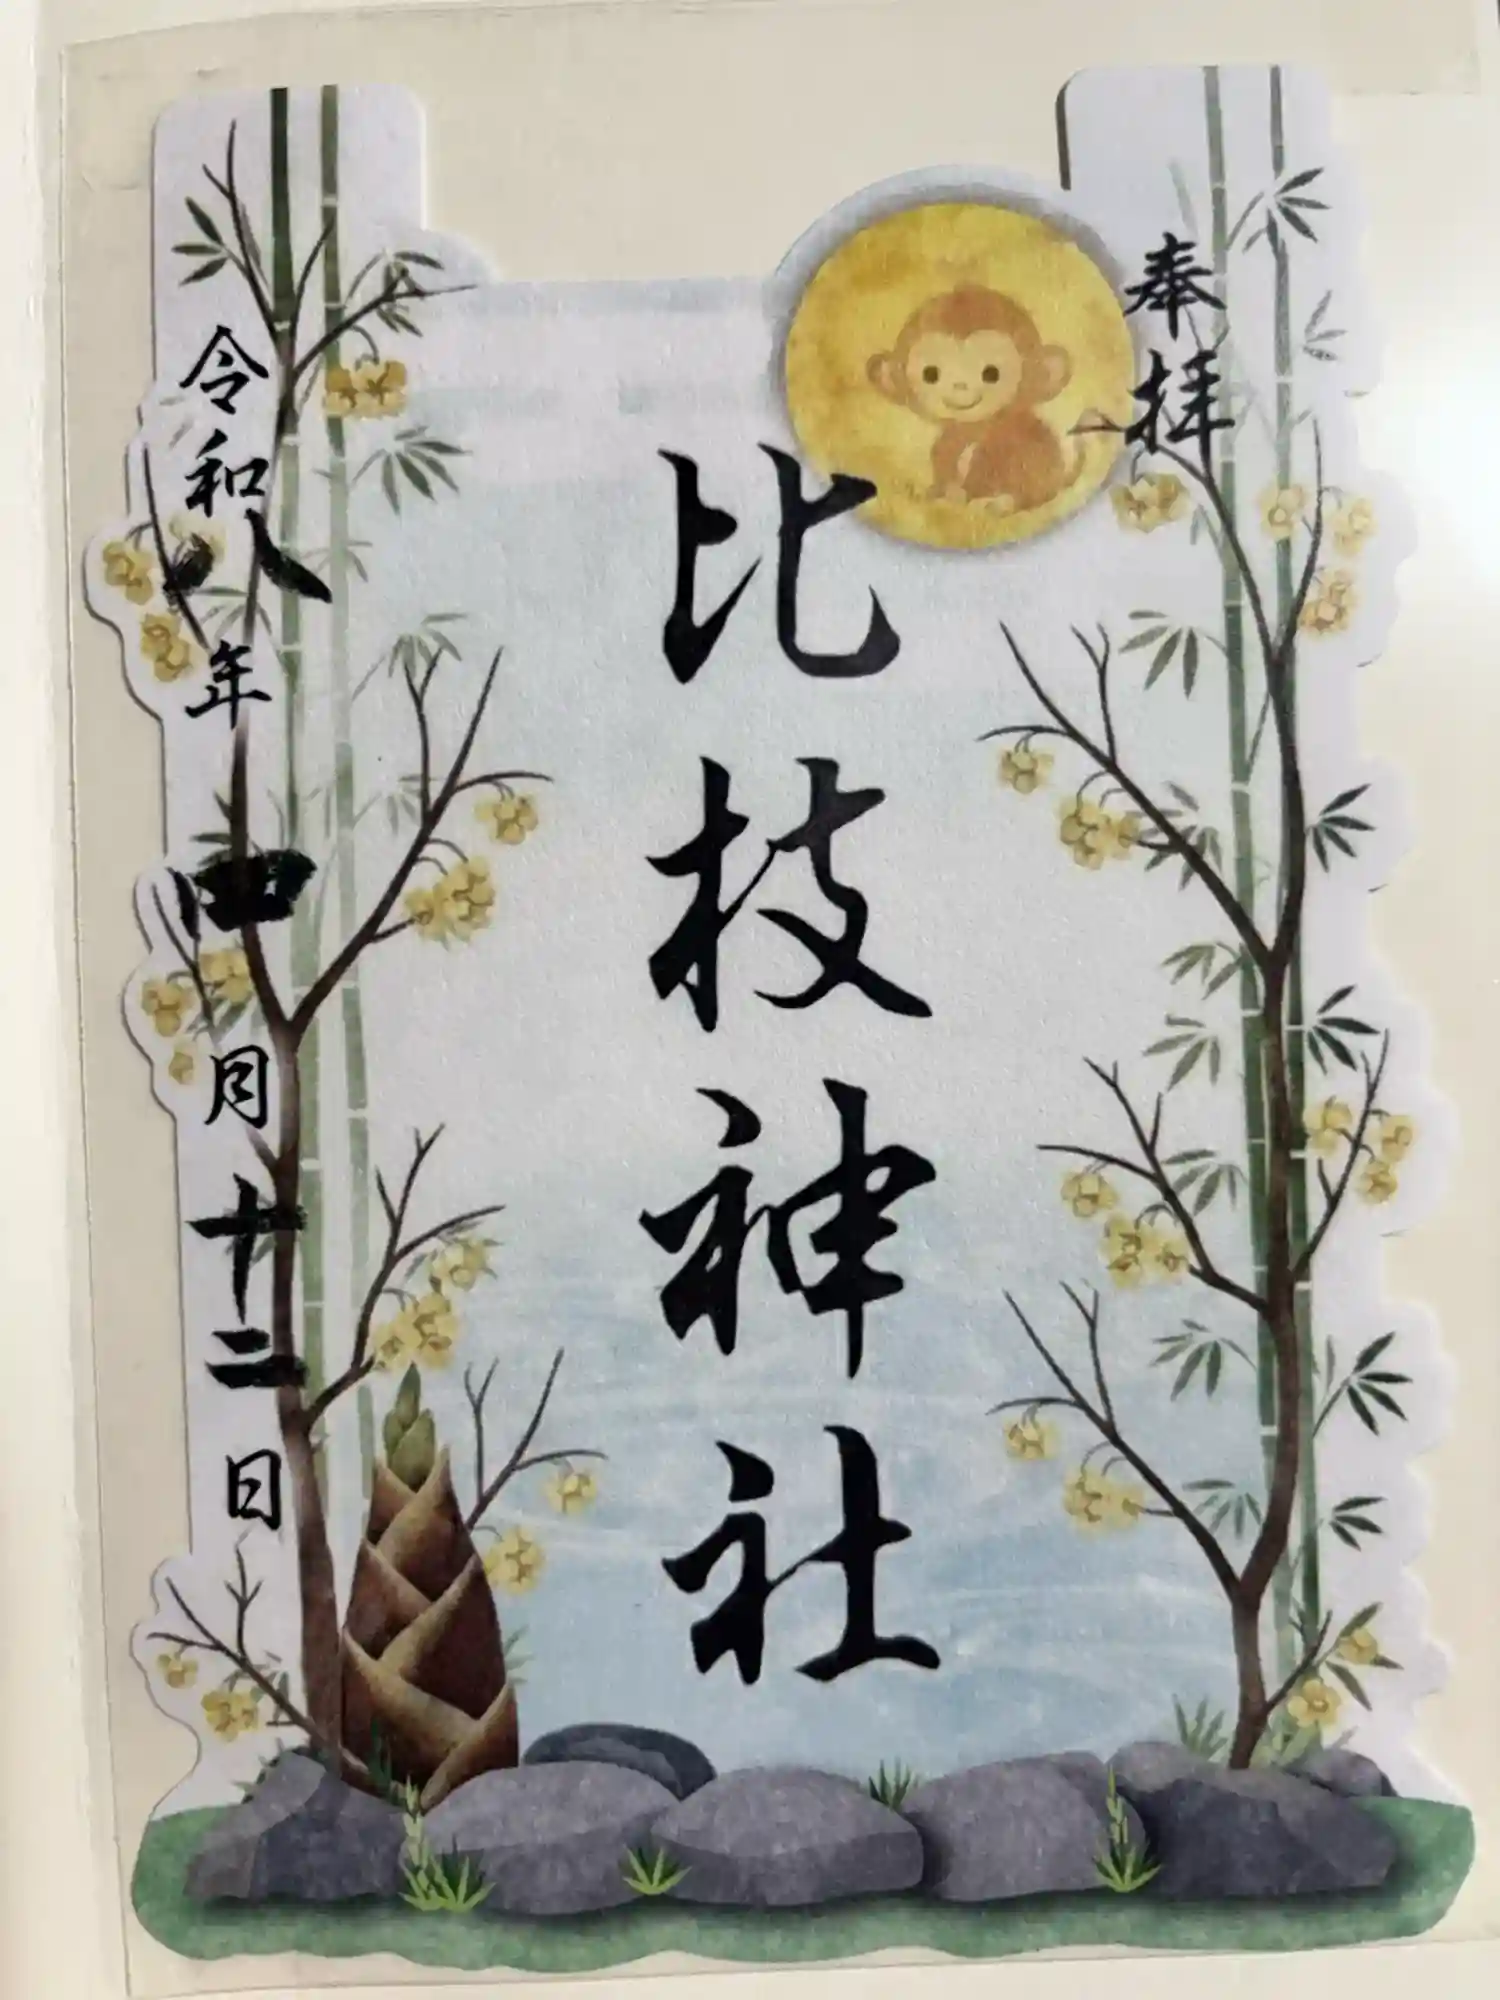 奉拝
比枝神社
令和八年四月十二日